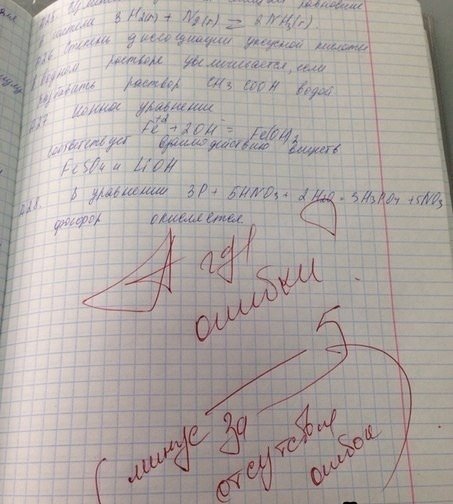 системе 3H2(г) + N2(г) ⇄ 2NH3(г)
A26 Степень диссоциации уксусной кислоты
в водном растворе увеличивается, если
разбавить раствор CH3COOH водой
A27 Ионное уравнение
Fe+2 + 2OH- = Fe(OH)2
соответствует взаимодействию веществ
FeSO4 и LiOH
A28. В уравнении 3P + 5HNO3 + 2H2O = 3H3PO4 + 5NO
фосфор окисляется
А где
ошибки
5
(минус за
отсутствие
ошибок